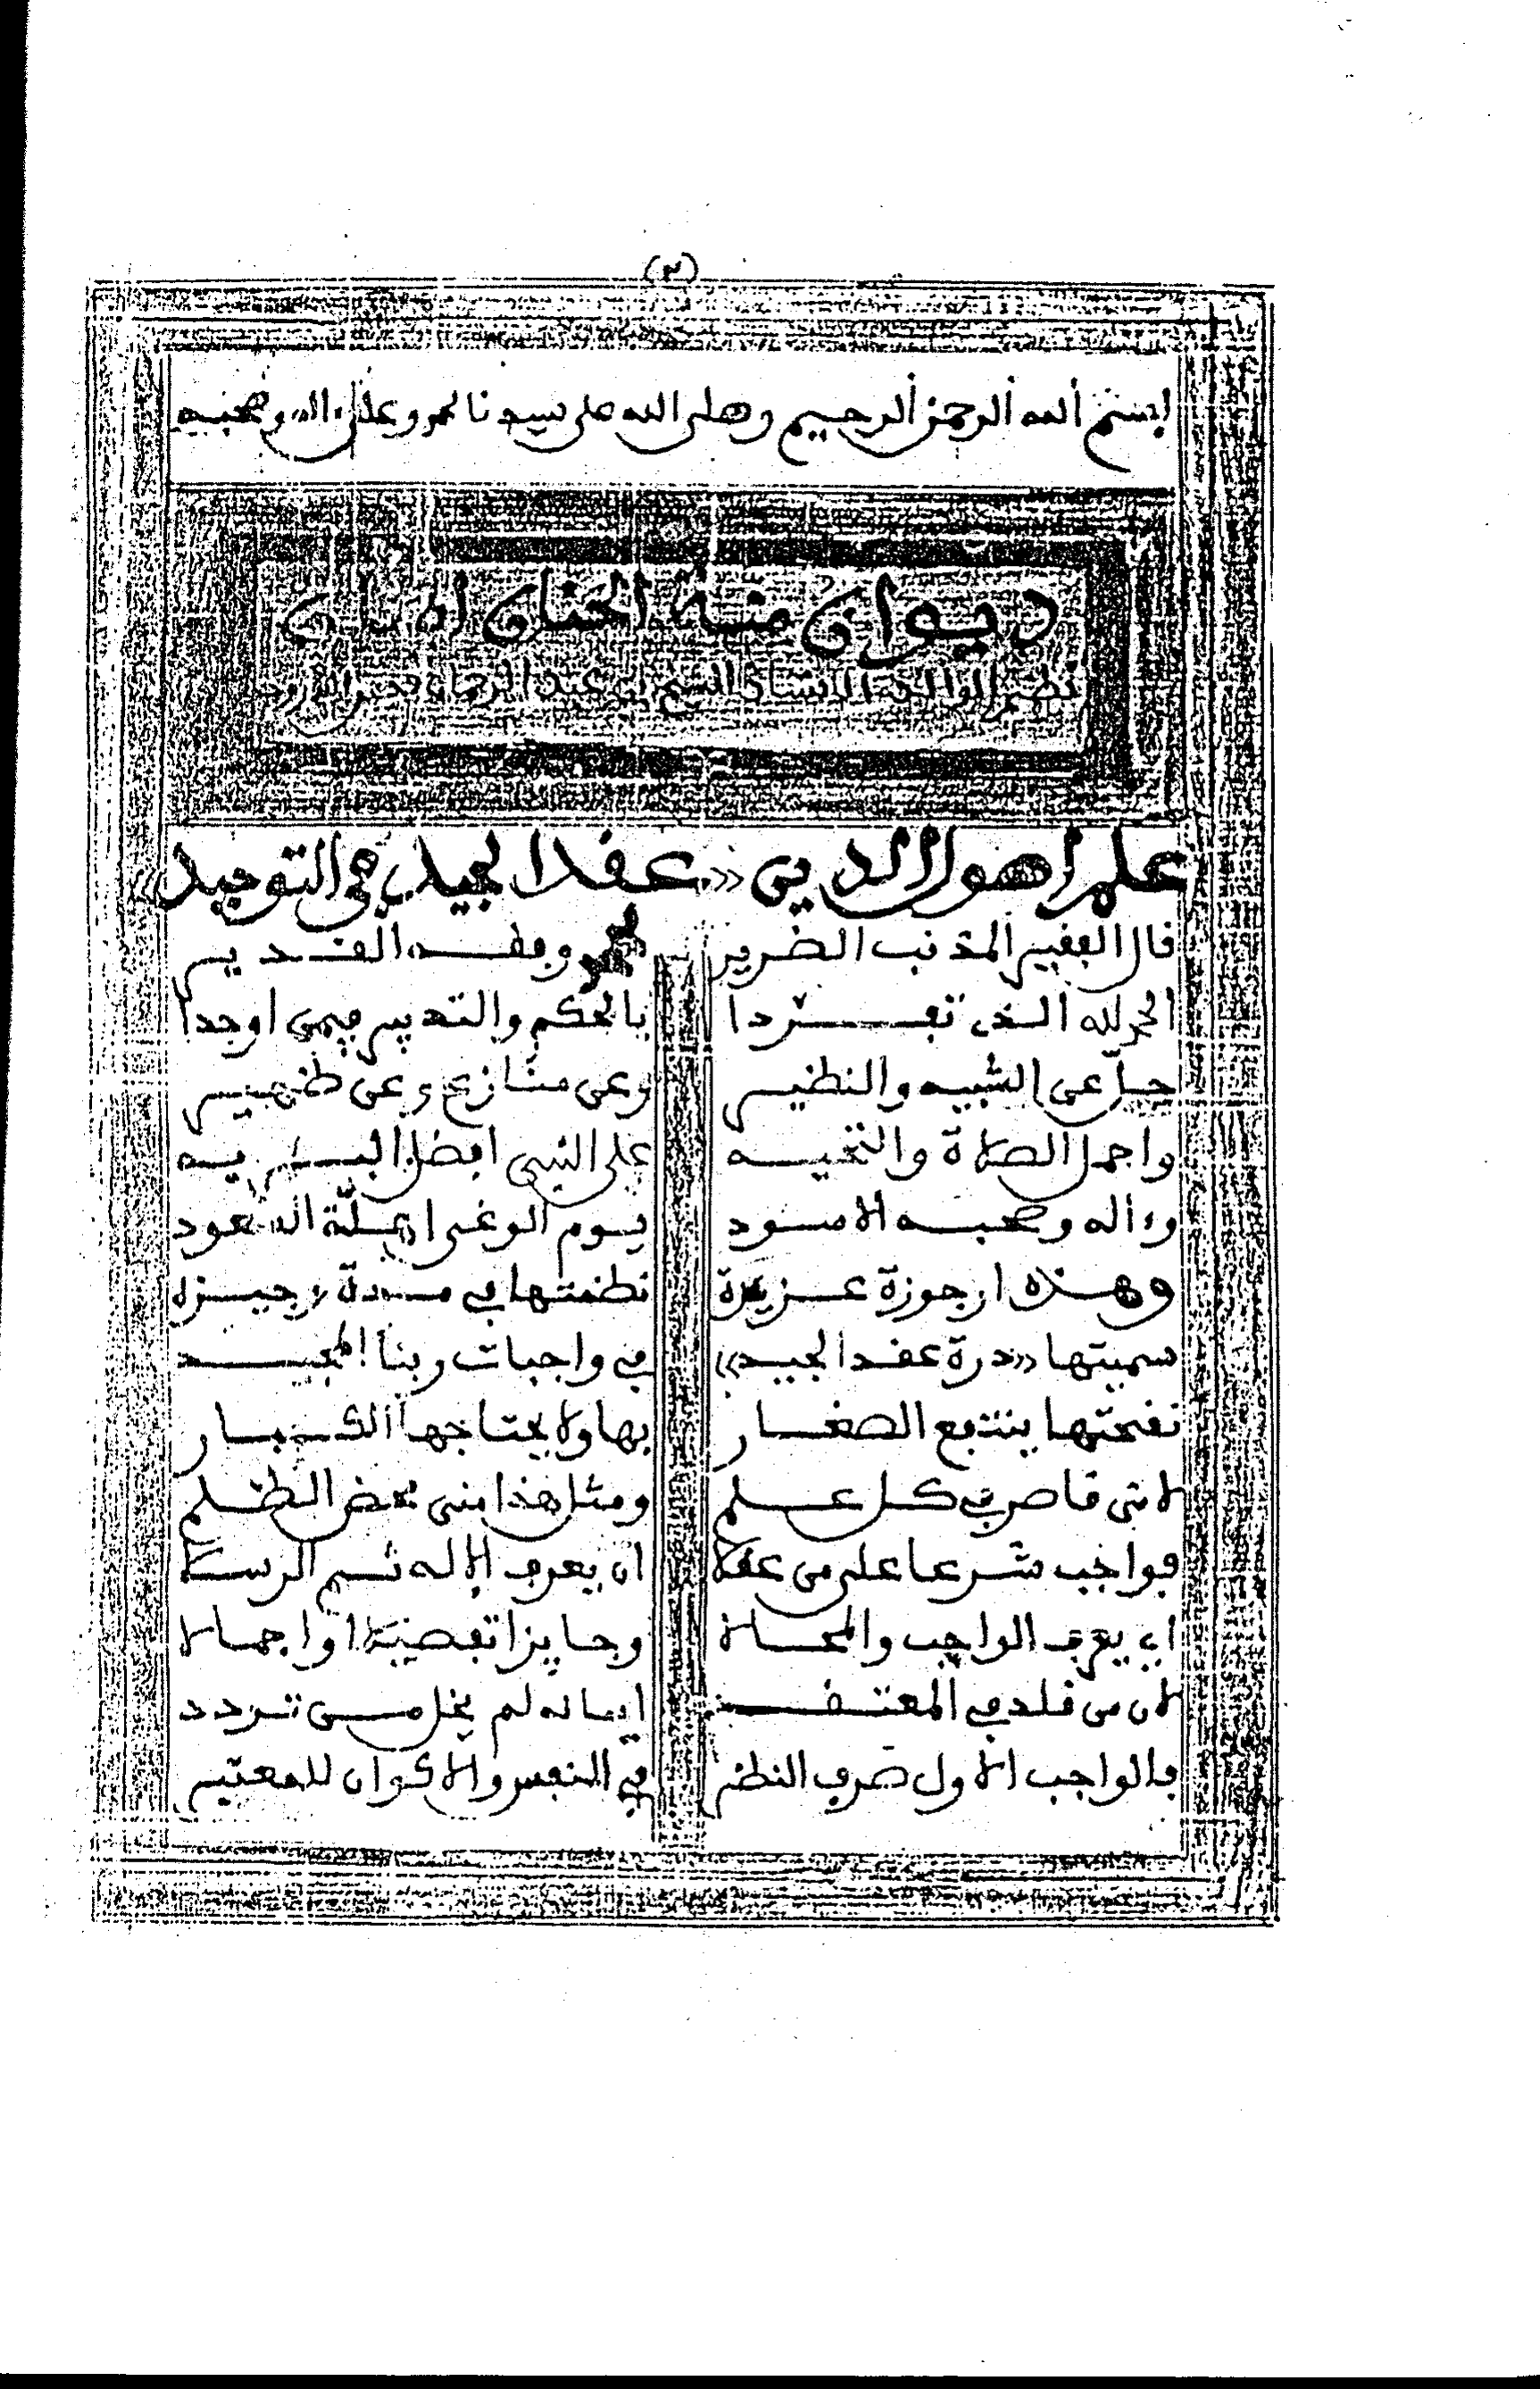 (٢)
بسم الله الرحمن الرحيم وصلى الله على سيدنا محمد وعلى ءاله وصحبه
ديوان منية الجنان
نظم الشيخ عبد الرحمان
علم اصول الدين «عقد الجيد» في التوحيد
قال الفقير المذنب الضرير محمد وفقه القدير
الحمد لله الذى تفردا بالحكم والتدبير فيمن اوجدا
جل عن الشبيه والنظير وعن منازع وعن ظهير
واجمل الصلاة والتحيه على النبي افضل البريه
وءاله وصحبه الاسود يوم الوغى السعود
وهذه ارجوزة عزيزة نظمتها في مدة وجيزه
سميتها «درة عقد الجيد» في واجبات ربنا المجيد
نظمتها ينتفع الصغار بها ولا يحتاجها الكبار
لانني قاصر في كل علم ومثل هذا مني محض الظلم
فواجب شرعا على من عقلا ان يعرف الاله ثم الرسلا
اي يعرف الواجب والمحالا وجايزا تفصيلا او اجمالا
لان من قلد في المعتقد ايمانه لم يخل من تردد
فالواجب الاول صرف النظر في النفس والاكوان للمعتبر